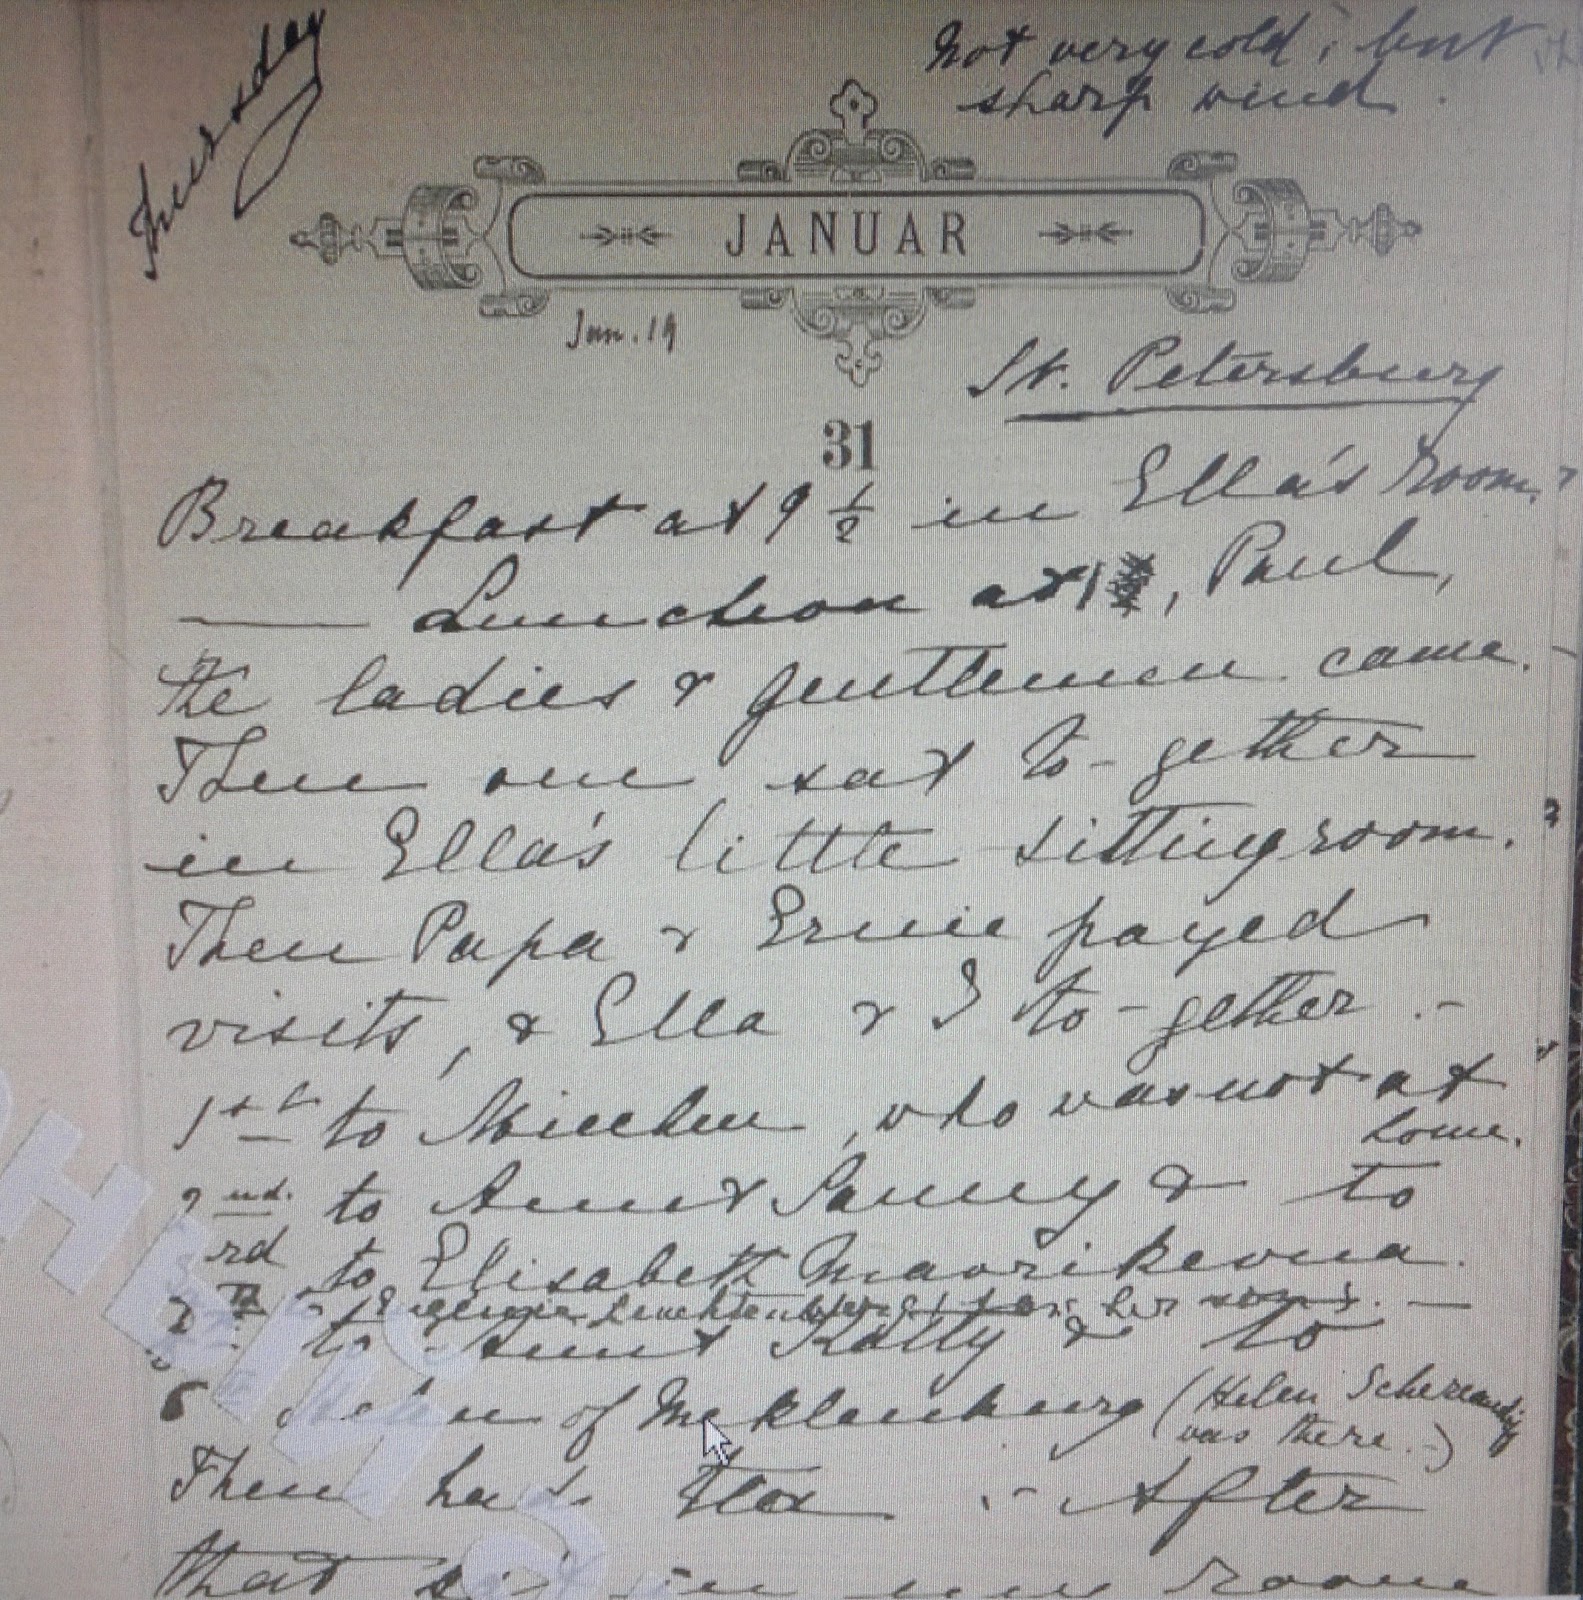 Thursday
Not very cold, but
sharp wind.
JANUAR
Jan. 19
St. Petersburg
31
Breakfast at 9 ½ in Ella's room.
— Luncheon at 1, Paul,
the ladies & gentlemen came.
Then one sat to-gether
in Ella's little sittingroom.
Then Papa & Ernie payed
visits, & Ella & I to-gether. -
1st to Miechen, who was not at
home.
2nd. to Aunt Sanny & to
3rd to Elisabeth Mavrikevna.
to Aunt Katty & to
of Meklenburg (Helen
was there.-)
Then had tea. - After
that in room